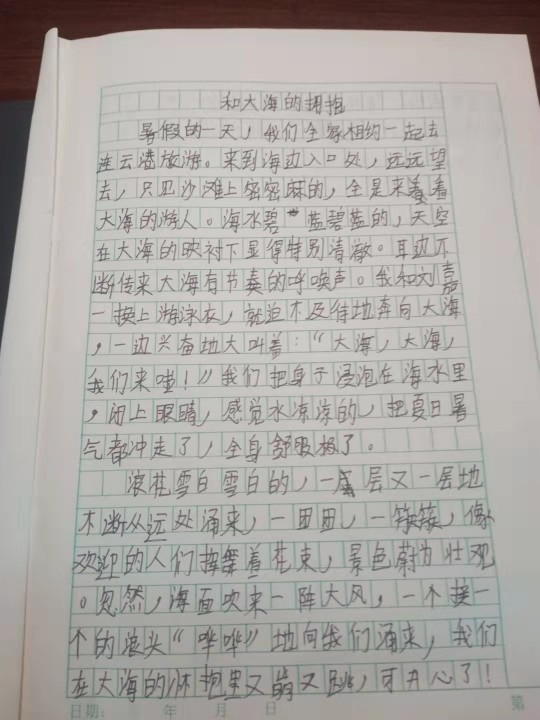 和大海的拥抱
暑假的一天，我们全家相约一起去
连云港旅游。来到海边入口处，远远望
去，只见沙滩上密密麻的，全是来看
大海的游人。海水碧蓝碧蓝的，天空
在大海的映衬下显得特别清澈。耳边不
断传来大海有节奏的呼唤声。我和刘嘉
一换上游泳衣，就迫不及待地奔向大海
，一边兴奋地大叫着：“大海，大海，
我们来啦！”我们把身子浸泡在海水里
，闭上眼睛，感觉水凉凉的，把夏日暑
气都冲走了，全身舒服极了。
浪花雪白雪白的，一层又一层地
不断从远处涌来，一团团，一簇簇，像
欢迎的人们挥舞着花束，景色蔚为壮观
。忽然，海面吹来一阵大风，一个接一
个的浪头“哗哗”地向我们涌来，我们
在大海的怀抱里又蹦又跳，可开心了！
日期： 年 月 日
第